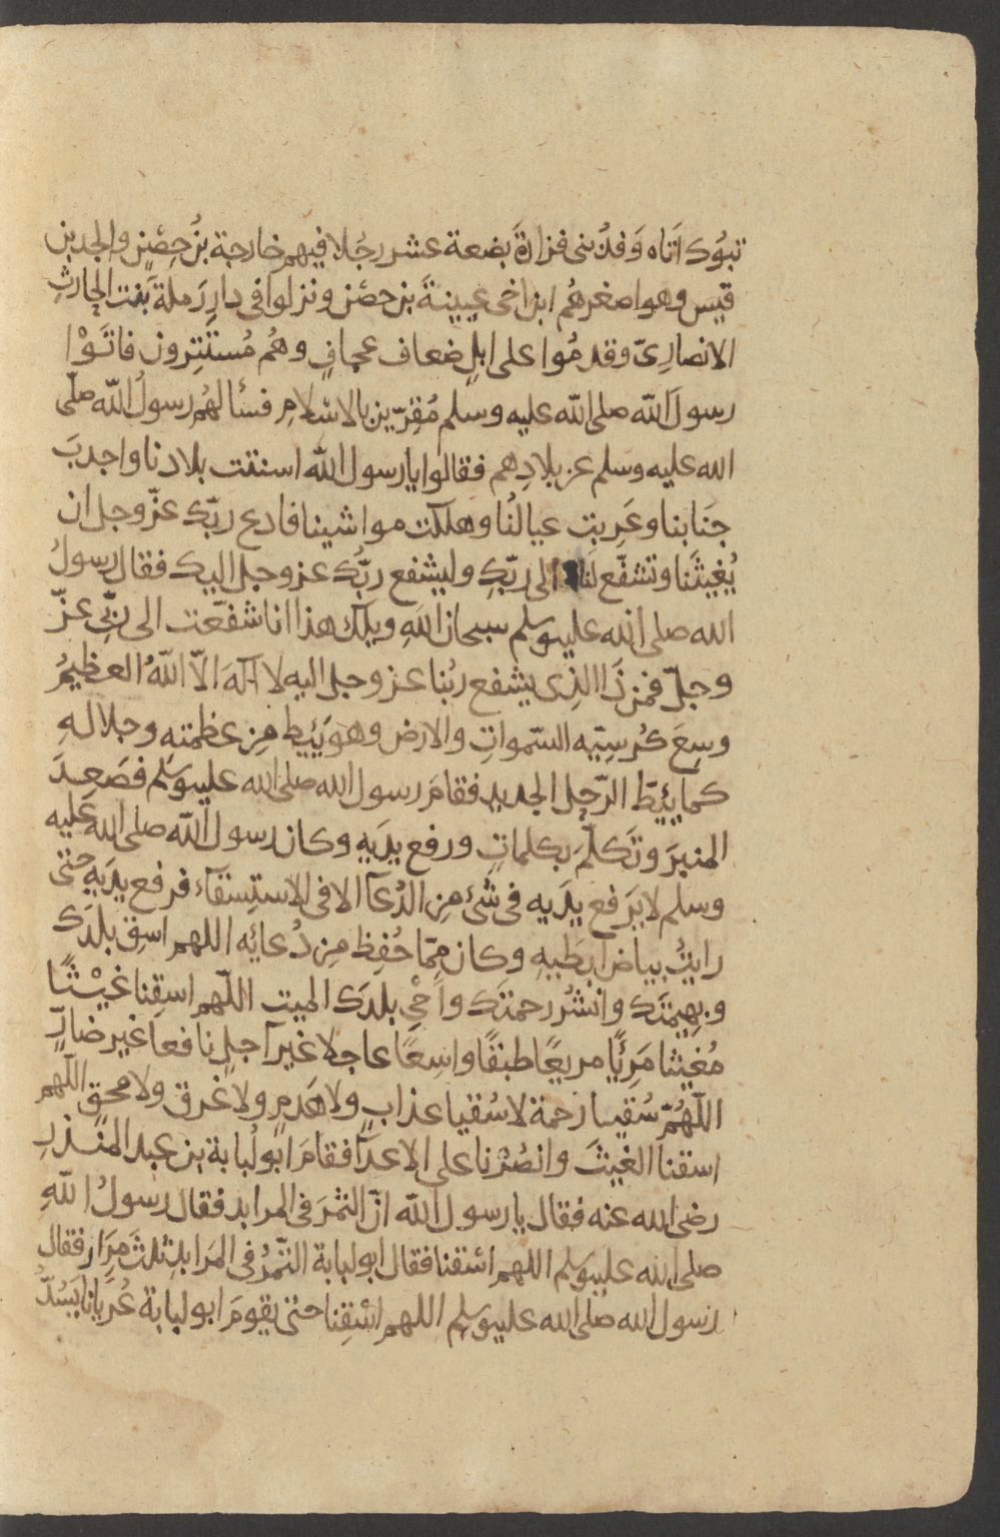 تبُوك اَتاه وَفدُ بنى فزارةَ بضعة عشر رجُلا فيهم خارجة بنُ حِصْنٍ والجد بن
قيس وهو اصغرهُم ابن اخى عيينةَ بن حصْن ونزلوا فى دارِ رَملةَ بَنت الحارثِ
الانصارِىّ وقدمُوا على ابلٍ ضعاف عجافٍ وهُم مُستَنِترون فاتَوْا
رسولَ الله صلى الله عليه وسلم مُقِرّين بالاسْلامِ فسألهُم رسولُ الله صلّى
الله عليه وسلم عن بلادِهم فقالوا يا رسول الله اسنتت بلادنا واجدبَ
جنَابنا وغَرِبتِ عيالُنا وهلكت مواشينا فادع ربّك عزّ وجل ان
يُغيثَنا وتشفّع لنَا الى ربّكِ وليشفع ربُّك عز وجل اليك فقال رسولُ
الله صلى الله عليه وسلم سبحان اللهِ ويلك هذا انا شفعّت الى ربّى عزّ
وجلّ فمن ذَا الذِى يشفع ربُنا عز وجل اليه لا اله الّا اللهُ العظيمُ
وسِعَ كُرسِيّه السّمواتِ والارض وهو يَئِط مِن عظمتهِ وجلالهِ
كما يئِطّ الرّحِل الجديدِ فقامَ رسول الله صلى الله عليه وسلم فصَعِدَ
المنبرَ وتَكلّمَ بكلماتٍ ورفع يديهِ وكان رسول الله صلى الله عليه
وسلم لا يَرفع يدَيه فى شئ مِن الدُعآ الا فى الاستِسقآء فرفع يدَيهِ حتى
رايتُ بياض ابطَيهِ وكان ممّا حُفِظ مِن دُعائِه اللهم اسقِ بلدَك
وبهيمتَك وانشُر رحمتَك واَحْىِ بلدَك الميت اللّهم اسقِنا غيْثًا
مُغيثنا مَرِئًا مريعًا طبقًا واسِعًا عاجلا غير آجلٍ نافعا غير ضارٍّ
اللّهُمّ سُقيا رَحمة لا سُقيا عذابٍ ولا هَدمٍ ولا غرق ولا محقٍ اللّهم
اسقنا الغيثَ وانصُرْنا على الاعدآ فقامَ ابو لُبابة بن عبد المنذرِ
رضى الله عنه فقال يا رسول الله انّ التمرَ فى المرابد فقال رسولُ اللهِ
صلى الله عليه وسلم اللهم اسْقنا فقال ابو لبابة التّمرُ فى المَرابدِ ثلثَ مِرَارٍ فقال
رسول الله صلى الله عليه وسلم اللهم اسْقِنا حتى يقومَ ابو لبابة عُريانا يَسُدُّ